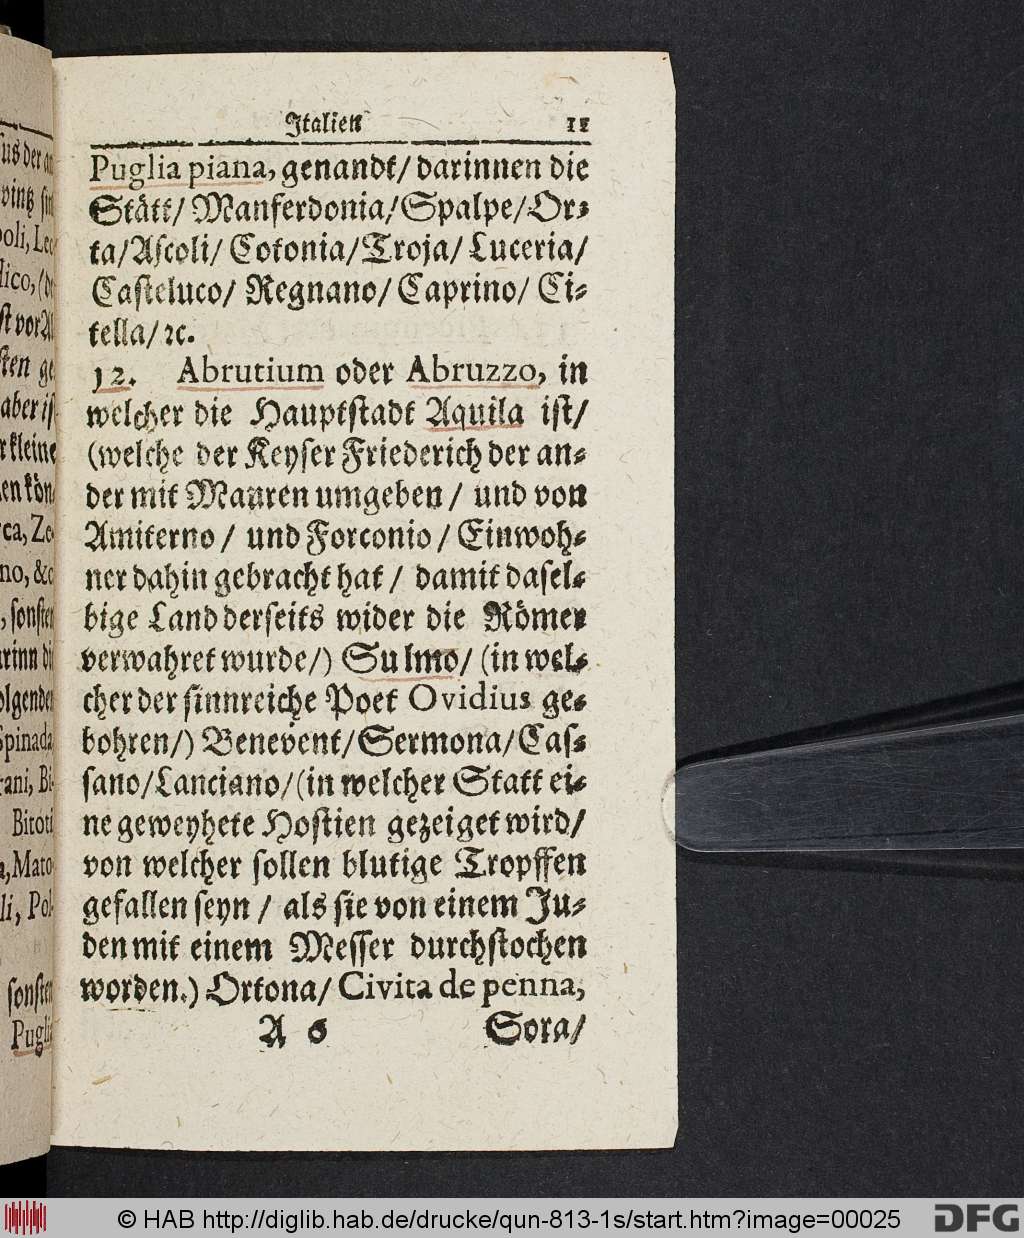 Italien 11
Puglia piana, genandt/ darinnen die
Stätt/ Manferdonia/Spalpe/Or⸗
ta/Aſcoli/ Cotonia/Troja/Luceria/
Caſteluco/ Regnano/ Caprino/ Ci⸗
tella/ ꝛc.
12. Abrutium oder Abruzzo, in
welcher die Hauptſtadt Aquila iſt/
(welche der Keyſer Friederich der an⸗
der mit Mauren umgeben/ und von
Amiterno/ und Forconio/ Einwoh⸗
ner dahin gebracht hat/ damit daſel⸗
bige Land derſeits wider die Römer
verwahret wurde/) Sulmo/ (in wel⸗
cher der ſinnreiche Poet Ovidius ge⸗
bohren/) Benevent/Sermona/Caſ⸗
ſano/Lanciano/(in welcher Statt ei⸗
ne geweyhete Hoſtien gezeiget wird/
von welcher ſollen blutige Tropffen
gefallen ſeyn/ als ſie von einem Ju⸗
den mit einem Meſſer durchſtochen
worden.) Ortona/ Civita de penna,
A 6 Sora/
ſus der an
oli, Lec
lico, (d
ſt vor A
ſten ge
aber iſ
r kleine
en kön
rca, Ze
no, &c
, ſonſten
arinn di
olgende
Spinada
rani, Bi
Bitoti
a, Mato
li, Pol
ſonſten
Pugli
© HAB http://diglib.hab.de/drucke/qun-813-1s/start.htm?image=00025
DFG